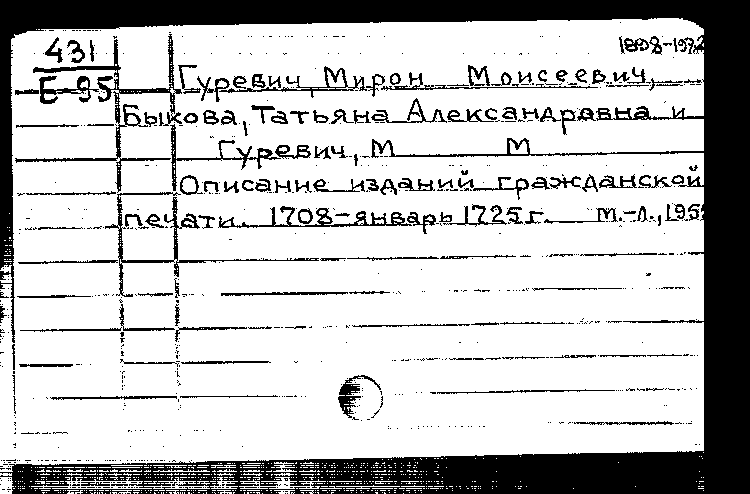 431
Е-95
Гуревич, Мирон Моисеевич,
Быкова, Татьяна Александровна и
Гуревич, М М
Описание изданий гражданской
печати. 1708-январь 1725 г. М.-Л.,